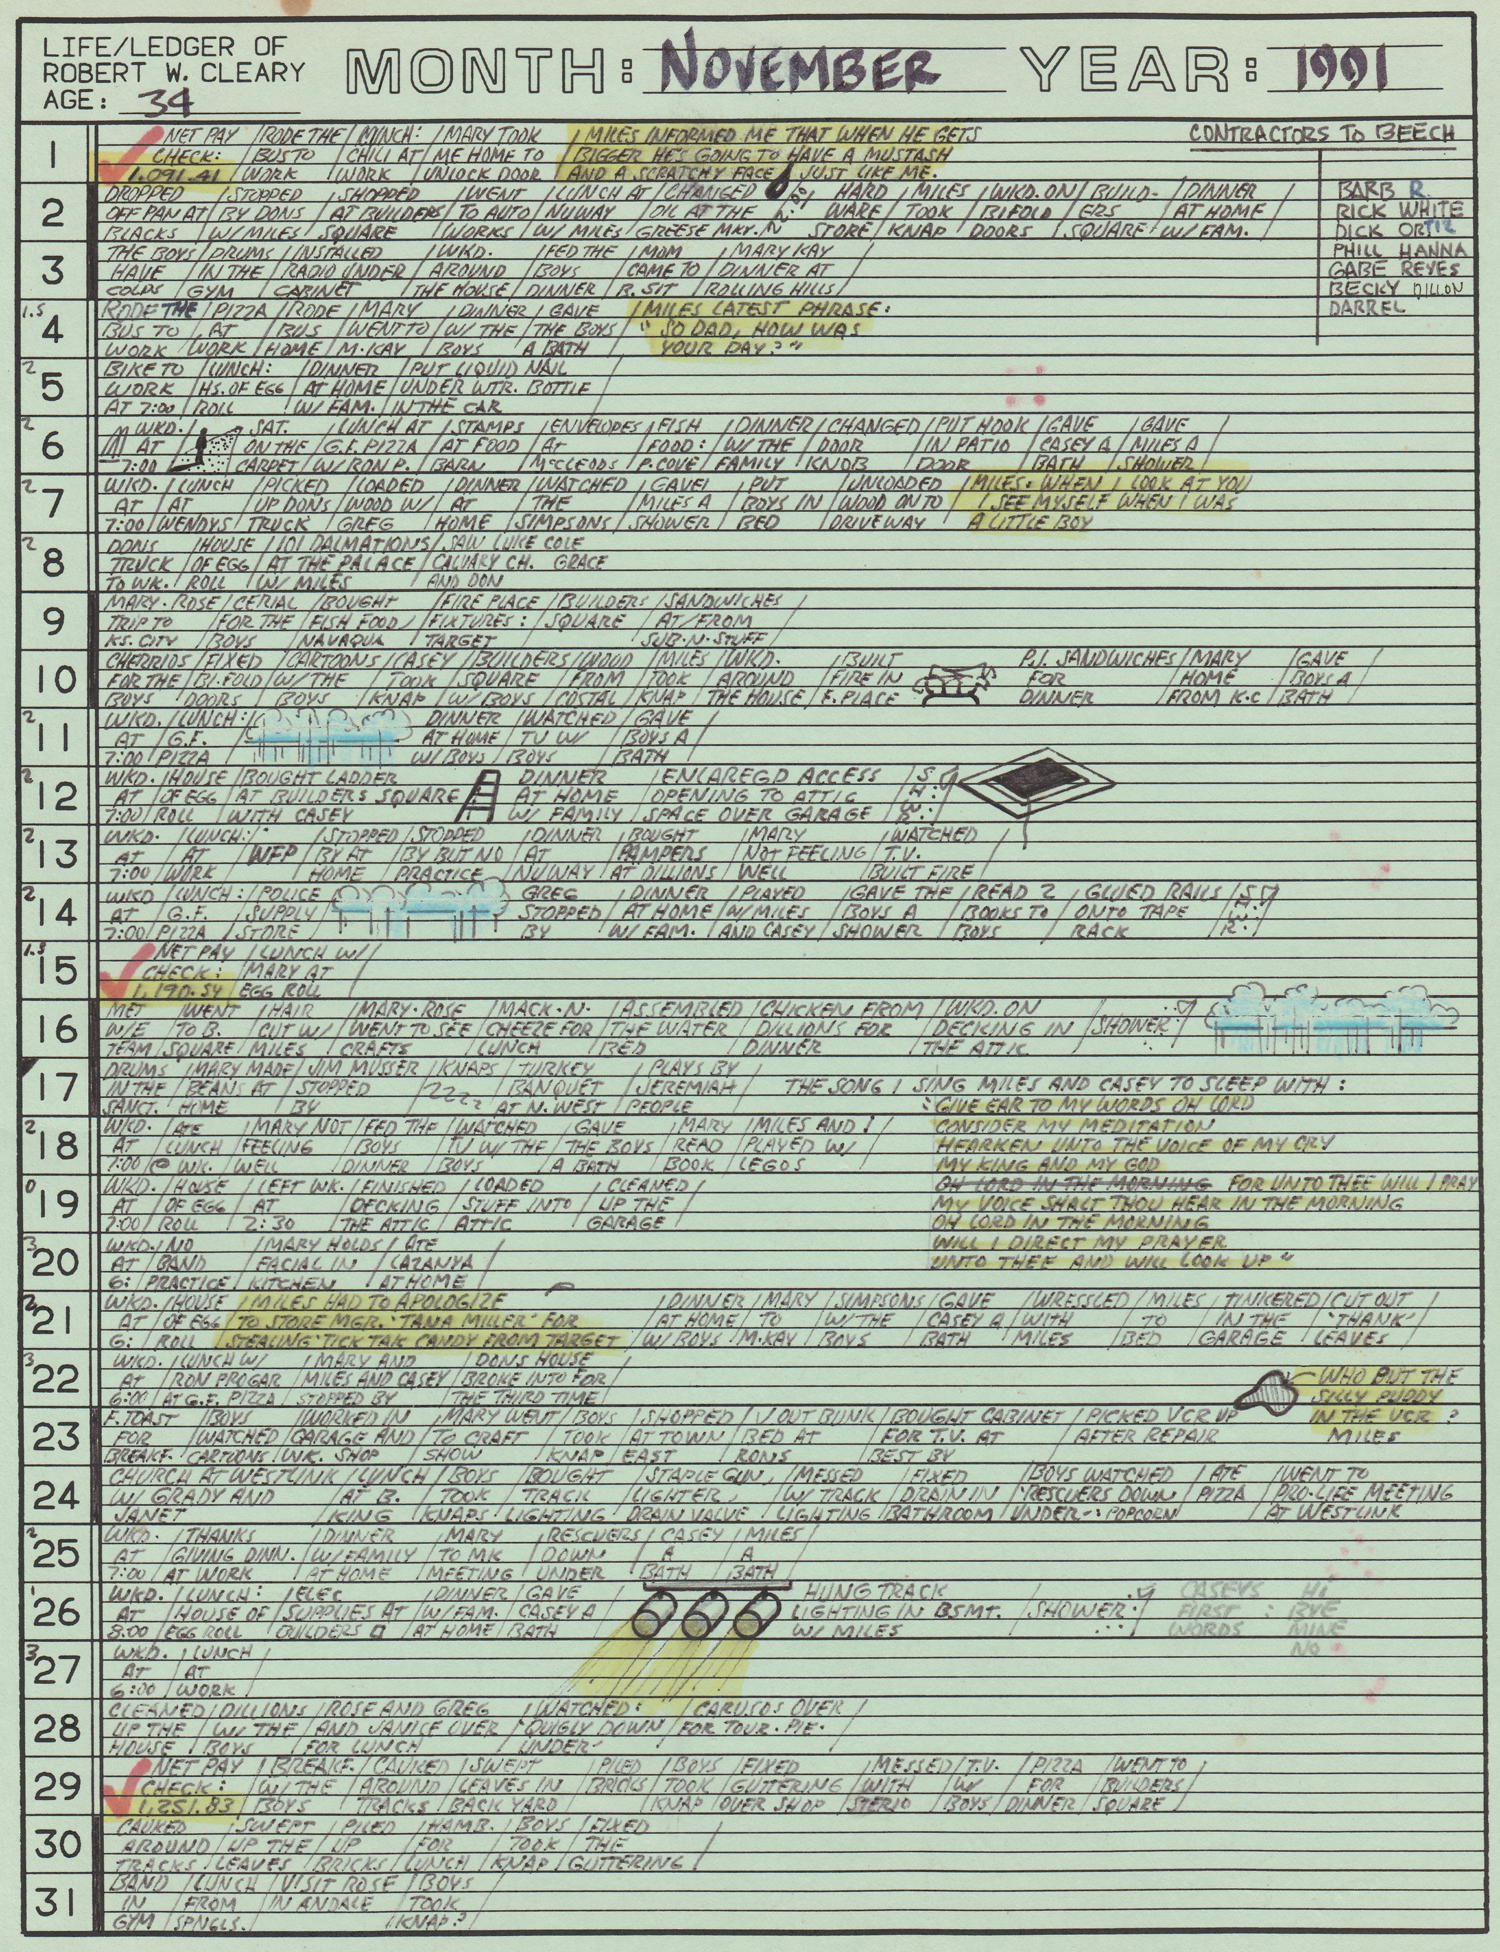 LIFE/LEDGER OF
ROBERT W. CLEARY
AGE: 34
MONTH: NOVEMBER YEAR: 1991
CONTRACTORS TO BEECH
BARB R.
RICK WHITE
DICK ORTIZ
PHILL HANNA
GABE REYES
BECKY DILLON
DARREL
1
NET PAY / RODE THE / LUNCH: / MARY TOOK / MILES INFORMED ME THAT WHEN HE GETS
CHECK: / BUS TO / CHILI AT / ME HOME TO / BIGGER HE'S GOING TO HAVE A MUSTASH
1,091.41 / WORK / WORK / UNLOCK DOOR / AND A SCRATCHY FACE JUST LIKE ME.
2
DROPPED / STOPPED / SHOPPED / WENT / LUNCH AT / CHANGED / HARD / MILES / WKD. ON / BUILD- / DINNER
OFF PAN AT / BY DONS / AT BUILDERS / TO AUTO / NUWAY / OIL AT THE / WARE / TOOK / BIFOLD / ERS / AT HOME
BLACKS / W/ MILES / SQUARE / WORKS / W/ MILES / GREESE MKY. / STORE / KNAP / DOORS / SQUARE / W/ FAM.
3
THE BOYS / DRUMS / INSTALLED / WKD. / FED THE / MOM / MARY KAY
HAVE / IN THE / RADIO UNDER / AROUND / BOYS / CAME TO / DINNER AT
COLDS / GYM / CABINET / THE HOUSE / DINNER / B. SIT / ROLLING HILLS
1.5
4
RODE THE / PIZZA / RODE / MARY / DINNER / GAVE / MILES LATEST PHRASE:
BUS TO / AT / BUS / WENT TO / W/ THE / THE BOYS / "SO DAD, HOW WAS
WORK / WORK / HOME / M. KAY / BOYS / A BATH / YOUR DAY?"
2
5
BIKE TO / LUNCH: / DINNER / PUT LIQUID NAIL
WORK / HS. OF EGG / AT HOME / UNDER WTR. BOTTLE
AT 7:00 / ROLL / W/ FAM. / IN THE CAR
2
6
WKD. / SAT. / LUNCH AT / STAMPS / ENVELOPES / FISH / DINNER / CHANGED / PUT HOOK / GAVE / GAVE
AT / ON THE / G.F. PIZZA / AT FOOD / AT / FOOD: / W/ THE / DOOR / IN PATIO / CASEY A / MILES A
7:00 / CARPET / W/ RON P. / BARN / McCLEODS / P. COVE / FAMILY / KNOB / DOOR / BATH / SHOWER
2
7
WKD. / LUNCH / PICKED / LOADED / DINNER / WATCHED / GAVE / PUT / UNLOADED / MILES: WHEN I LOOK AT YOU
AT / AT / UP DONS / WOOD W/ / AT / THE / MILES A / BOYS IN / WOOD ONTO / I SEE MYSELF WHEN I WAS
7:00 / WENDYS / TRUCK / GREG / HOME / SIMPSONS / SHOWER / BED / DRIVEWAY / A LITTLE BOY
2
8
DONS / HOUSE / 101 DALMATIONS / SAW LUKE COLE
TRUCK / OF EGG / AT THE PALACE / CALVARY CH. GRACE
TO WK. / ROLL / W/ MILES / AND DON
9
MARY-ROSE / CERIAL / BOUGHT / FIRE PLACE / BUILDERS / SANDWICHES
TRIP TO / FOR THE / FISH FOOD / FIXTURES: / SQUARE / AT/FROM
KS. CITY / BOYS / NAVAQUA / TARGET / SUB-N-STUFF
10
CHERRIOS / FIXED / CARTOONS / CASEY / BUILDERS / WOOD / MILES / WKD. / BUILT / P.J. SANDWICHES / MARY / GAVE
FOR THE / BI-FOLD / W/ THE / TOOK / SQUARE / FROM / TOOK / AROUND / FIRE IN / FOR / HOME / BOYS A
BOYS / DOORS / BOYS / KNAP / W/ BOYS / COSTAL / KNAP / THE HOUSE / F. PLACE / DINNER / FROM K.C / BATH
2
11
WKD. / LUNCH: / DINNER / WATCHED / GAVE
AT / G.F. / AT HOME / TV W/ / BOYS A
7:00 / PIZZA / W/ BOYS / BOYS / BATH
2
12
WKD. / HOUSE / BOUGHT LADDER / DINNER / ENLAREGD ACCESS
AT / OF EGG / AT BUILDERS SQUARE / AT HOME / OPENING TO ATTIC
7:00 / ROLL / WITH CASEY / W/ FAMILY / SPACE OVER GARAGE
2
13
WKD. / LUNCH: / STOPPED / STOPPED / DINNER / BOUGHT / MARY / WATCHED
AT / AT / WFP / BY AT / BY BUT NO / AT / PAMPERS / NOT FEELING / T.V.
7:00 / WORK / HOME / PRACTICE / NUWAY / AT DILLIONS / WELL / BUILT FIRE
2
14
WKD / LUNCH: / POLICE / GREG / DINNER / PLAYED / GAVE THE / READ 2 / GLUED RAILS
AT / G.F. / SUPPLY / STOPPED / AT HOME / W/ MILES / BOYS A / BOOKS TO / ONTO TAPE
7:00 / PIZZA / STORE / BY / W/ FAM. / AND CASEY / SHOWER / BOYS / RACK
1.5
15
NET PAY / LUNCH W/
CHECK: / MARY AT
1,190.54 / EGG ROLL
16
MET / WENT / HAIR / MARY-ROSE / MACK-N- / ASSEMBLED / CHICKEN FROM / WKD. ON
W/E / TO B. / CUT W/ / WENT TO SEE / CHEEZE FOR / THE WATER / DILLIONS FOR / DECKING IN / SHOWER
TEAM / SQUARE / MILES / CRAFTS / LUNCH / BED / DINNER / THE ATTIC
17
DRUMS / MARY MADE / JIM MUSSER / KNAPS / TURKEY / PLAYS BY
IN THE / BEANS AT / STOPPED / ZZZZ / BANQUET / JEREMIAH / THE SONG I SING MILES AND CASEY TO SLEEP WITH:
SANCT. / HOME / BY / AT N. WEST / PEOPLE / "GIVE EAR TO MY WORDS OH LORD
2
18
WKD. / ATE / MARY NOT / FED THE / WATCHED / GAVE / MARY / MILES AND I / CONSIDER MY MEDITATION
AT / LUNCH / FEELING / BOYS / TV W/ THE / THE BOYS / READ / PLAYED W/ / HEARKEN UNTO THE VOICE OF MY CRY
7:00 / @ WK. / WELL / DINNER / BOYS / A BATH / BOOK / LEGOS / MY KING AND MY GOD
0
19
WKD. / HOUSE / LEFT WK. / FINISHED / LOADED / CLEANED / OH LORD IN THE MORNING FOR UNTO THEE WILL I PRAY
AT / OF EGG / AT / DECKING / STUFF INTO / UP THE / MY VOICE SHALT THOU HEAR IN THE MORNING
7:00 / ROLL / 2:30 / THE ATTIC / ATTIC / GARAGE / OH LORD IN THE MORNING
3
20
WKD. / NO / MARY HOLDS / ATE / WILL I DIRECT MY PRAYER
AT / BAND / FACIAL IN / LAZANYA / UNTO THEE AND WILL LOOK UP"
6: / PRACTICE / KITCHEN / AT HOME
2
21
WKD. / HOUSE / MILES HAD TO APOLOGIZE / DINNER / MARY / SIMPSONS / GAVE / WRESSLED / MILES / TINKERED / CUT OUT
AT / OF EGG / TO STORE MGR. 'TANA MILLER' FOR / AT HOME / TO / W/ THE / CASEY A / WITH / TO / IN THE / 'THANK'
6: / ROLL / STEALING 'TICK TAK CANDY FROM TARGET / W/ BOYS / M-KAY / BOYS / BATH / MILES / BED / GARAGE / LEAVES
3
22
WKD. / LUNCH W/ / MARY AND / DONS HOUSE / WHO PUT THE
AT / RON PROGAR / MILES AND CASEY / BROKE INTO FOR / SILLY PUDDY
6:00 / AT G.F. PIZZA / STOPPED BY / THE THIRD TIME / IN THE VCR ?
MILES
23
F. TOAST / BOYS / WORKED IN / MARY WENT / BOYS / SHOPPED / V OUT BUNK / BOUGHT CABINET / PICKED VCR UP
FOR / WATCHED / GARAGE AND / TO CRAFT / TOOK / AT TOWN / BED AT / FOR T.V. AT / AFTER REPAIR
BREAKF. / CARTOONS / WK. SHOP / SHOW / KNAP / EAST / RONS / BEST BY
24
CHURCH AT WESTLINK / LUNCH / BOYS / BOUGHT / STAPLE GUN, / MESSED / FIXED / BOYS WATCHED / ATE / WENT TO
W/ GRADY AND / AT B. / TOOK / TRACK / LIGHTER / W/ TRACK / DRAIN IN / 'RESCUERS DOWN / PIZZA / PRO-LIFE MEETING
JANET / KING / KNAPS / LIGHTING / DRAIN VALVE / LIGHTING / BATHROOM / UNDER / POPCORN / AT WESTLINK
2
25
WKD. / THANKS / DINNER / MARY / RESCUERS / CASEY / MILES
AT / GIVING DINN. / W/ FAMILY / TO MK / DOWN / A / A
7:00 / AT WORK / AT HOME / MEETING / UNDER / BATH / BATH
1
26
WKD. / LUNCH: / ELEC / DINNER / GAVE / HUNG TRACK / CASEYS HI
AT / HOUSE OF / SUPPLIES AT / W/ FAM. / CASEY A / LIGHTING IN BSMT. / SHOWER / FIRST : BYE
8:00 / EGG ROLL / BUILDERS □ / AT HOME / BATH / W/ MILES / WORDS MINE
NO
3
27
WKD. / LUNCH
AT / AT
6:00 / WORK
28
CLEANED / DILLIONS / ROSE AND GREG / WATCHED: / CARUSOS OVER
UP THE / W/ THE / AND JANICE OVER / 'QUIGLY DOWN / FOR TOUR. PIE.
HOUSE / BOYS / FOR LUNCH / UNDER'
29
NET PAY / BREAKF. / CAUKED / SWEPT / PILED / BOYS / FIXED / MESSED / T.V. / PIZZA / WENT TO
CHECK: / W/ THE / AROUND / LEAVES IN / BRICKS / TOOK / GUTTERING / WITH / W/ / FOR / BUILDERS
1,251.83 / BOYS / TRACKS / BACK YARD / KNAP / OVER SHOP / STERIO / BOYS / DINNER / SQUARE
30
CAUKED / SWEPT / PILED / HAMB. / BOYS / FIXED
AROUND / UP THE / UP / FOR / TOOK / THE
TRACKS / LEAVES / BRICKS / LUNCH / KNAP / GUTTERING
31
BAND / LUNCH / VISIT ROSE / BOYS
IN / FROM / IN ANDALE / TOOK
GYM / SPNGLS. / KNAP?